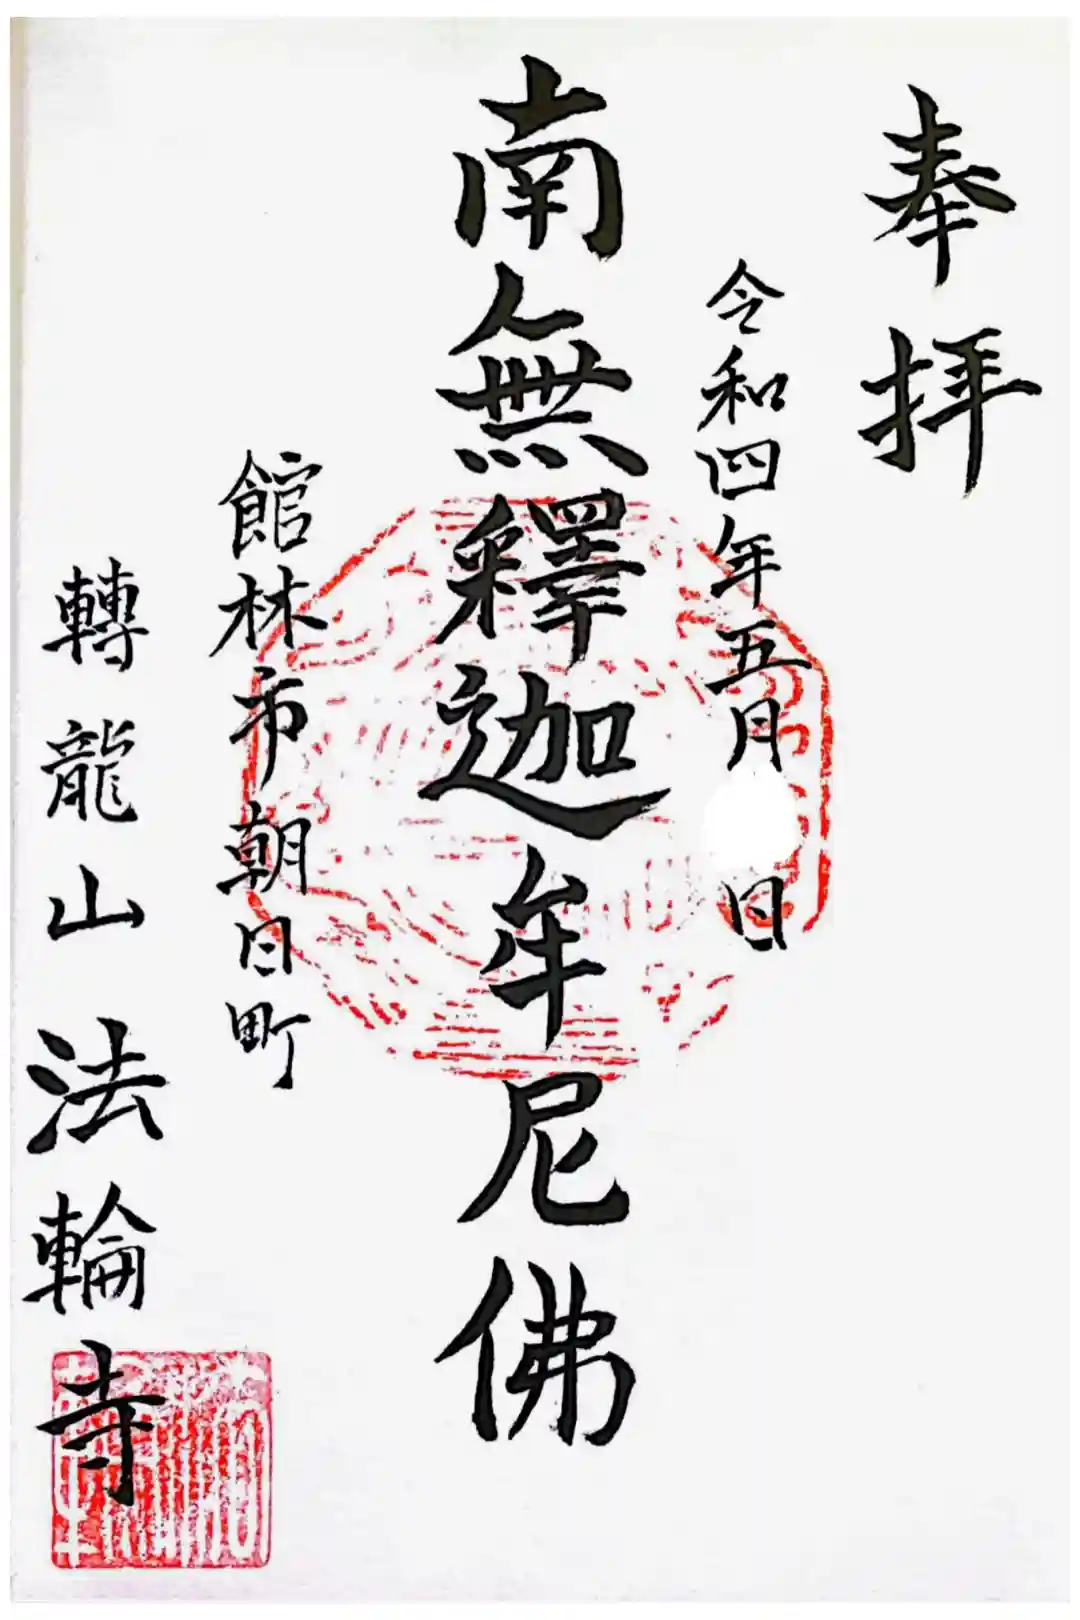 奉拝
令和四年五月 日
南無釋迦牟尼佛
館林市朝日町
轉龍山法輪寺